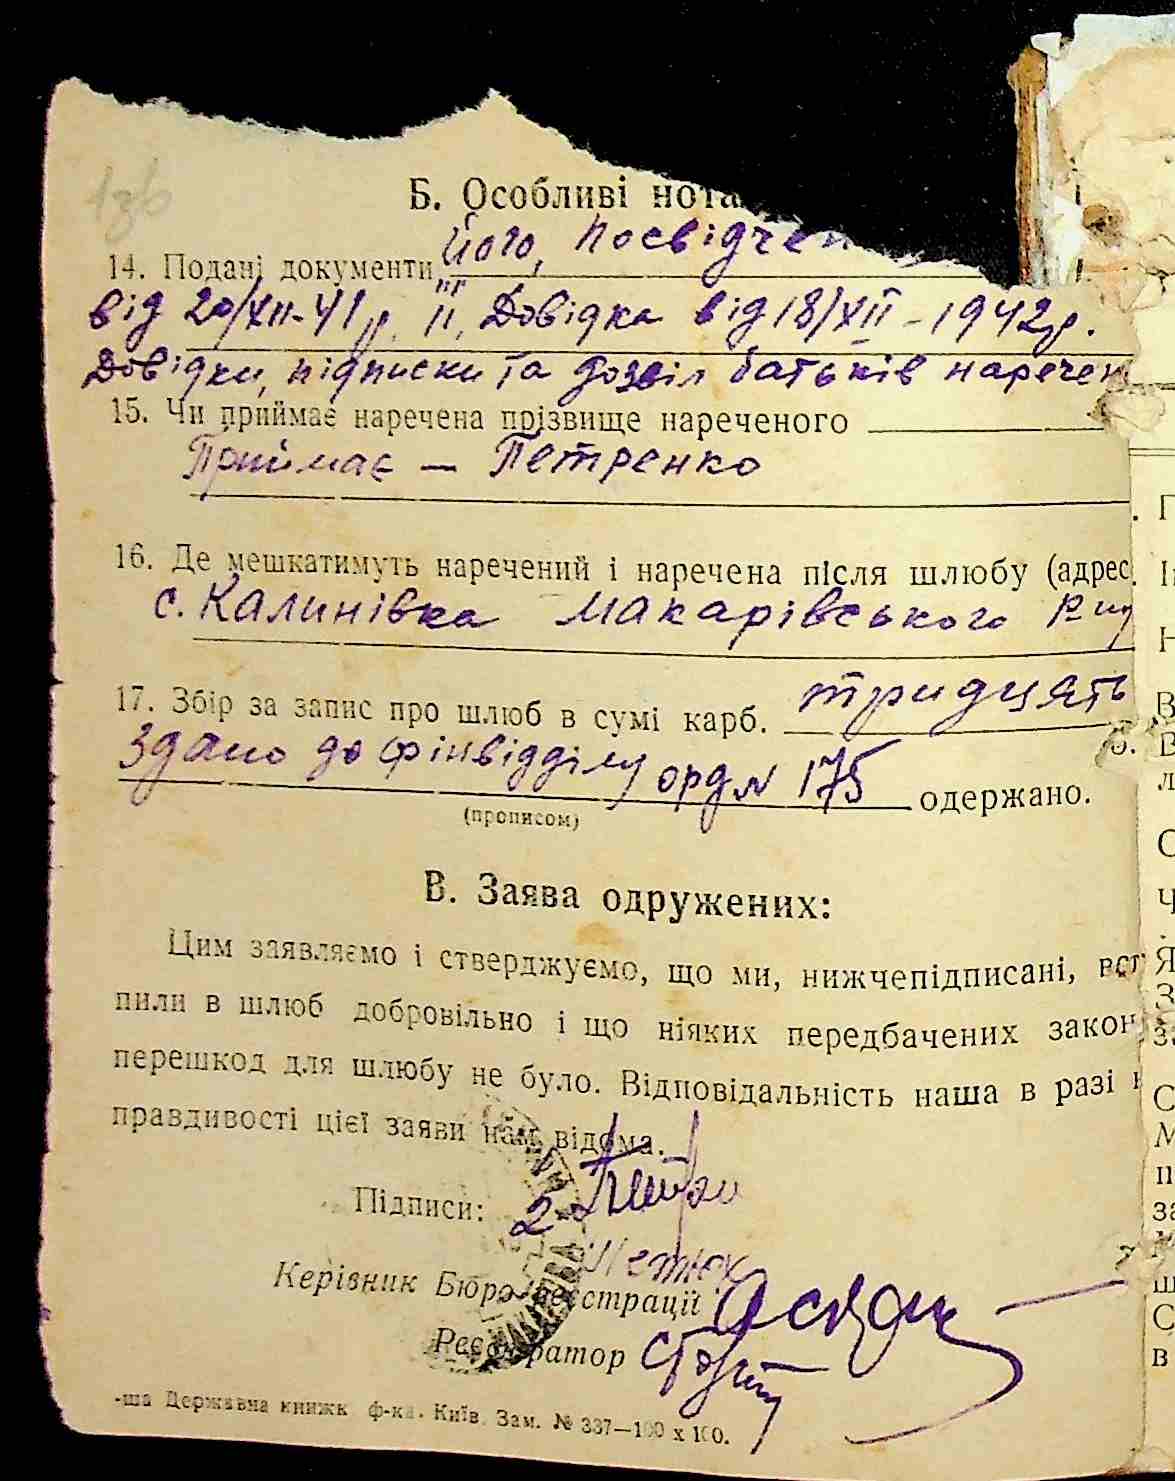 136
Б. Особливі нота
14. Подані документи його, посвідчен
від 20/XII-41 р. її, Довідка від 18/XII-1942р.
Довідки, підписки та дозвіл батьків наречен
15. Чи приймає наречена прізвище нареченого
Приймає — Петренко
16. Де мешкатимуть наречений і наречена після шлюбу (адрес
с. Калинівка Макарівського
17. Збір за запис про шлюб в сумі карб. тридцять
Здано до фінвідділу орд № 175 одержано.
(прописом)
В. Заява одружених:
Цим заявляємо і стверджуємо, що ми, нижчепідписані, вст
пили в шлюб добровільно і що ніяких передбачених закон
перешкод для шлюбу не було. Відповідальність наша в разі н
правдивості цієї заяви нам відома.
Підписи:
2.
Керівник Бюро реєстрації
Реєстратор
-ша Державна книжк. ф-ка. Київ. Зам. № 337—100 x 100.